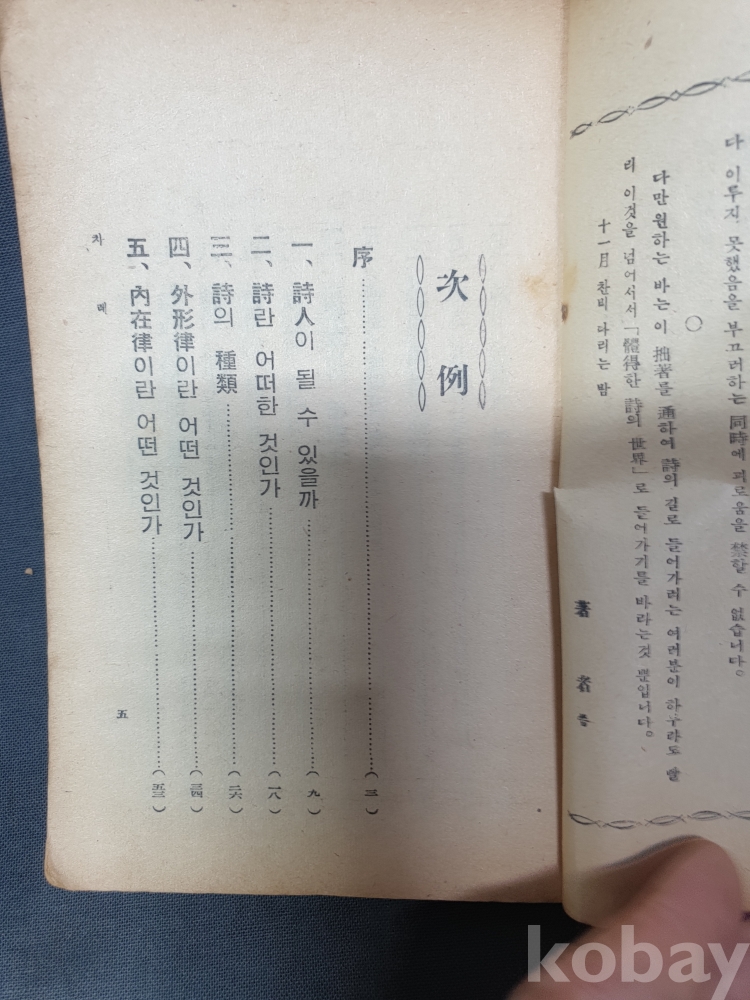 다 이루지 못했음을 부끄러하는 同時에 괴로움을 禁할 수 없습니다。
○
다만 원하는 바는 이 拙著를 通하여 詩의 길로 들어가려는 여러분이 하루라도 빨
리 이것을 넘어서서 「體得한 詩의 世界」로 들어가기를 바라는것 뿐입니다。
十一月 찬비 나리는 밤
著者들
次例
序……(三)
一、詩人이 될 수 있을까……(九)
二、詩란 어떠한 것인가……(一八)
三、詩의 種類……(二六)
四、外形律이란 어떤 것인가……(三四)
五、內在律이란 어떤 것인가……(五三)
차례
五
kobay